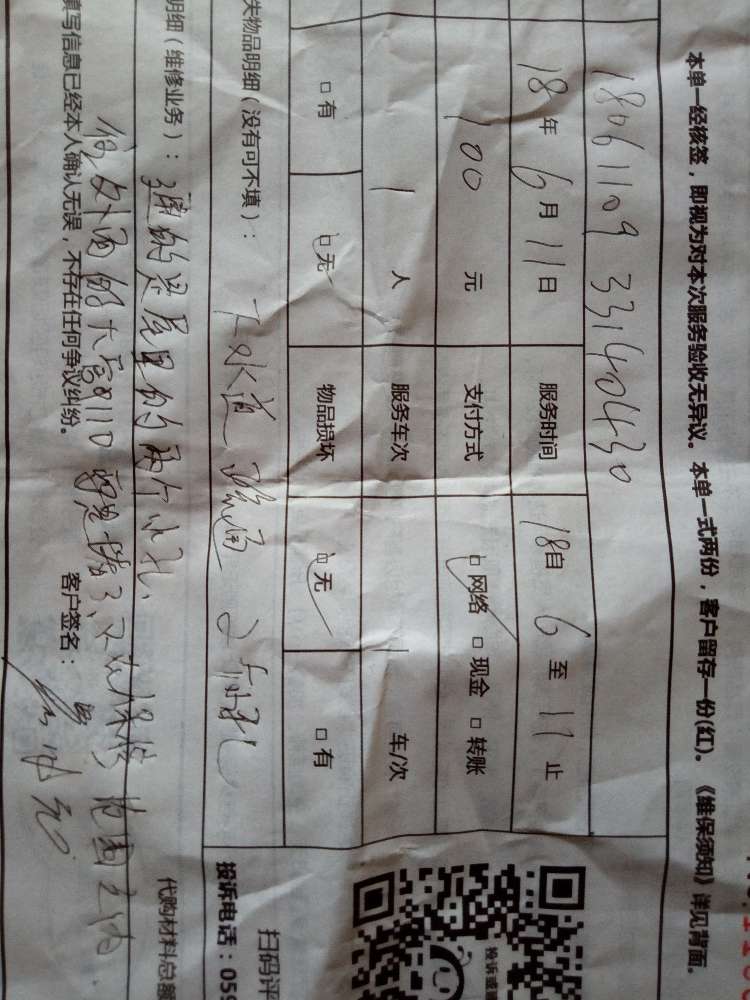 本单一经核签，即视为对本次服务验收无异议。本单一式两份，客户留存一份(红)。《维保须知》详见背面。
18061109 33140430
18年 6月 11日 服务时间 18自 6至 11止
100 元 支付方式 □网络 □现金 □转账
1 人 服务车次 1 车/次
□有 □无 物品损坏 □无 □有
失物品明细（没有可不填）： 下水道 疏通 2个小孔
明细（维修业务）： 通的是屋里的两个小孔、
外面的大窗口 要是堵了、不在保修范围之内
填写信息已经本人确认无误，不存在任何争议纠纷。 客户签名：
投诉或
扫码评
投诉电话：059
代购材料总额